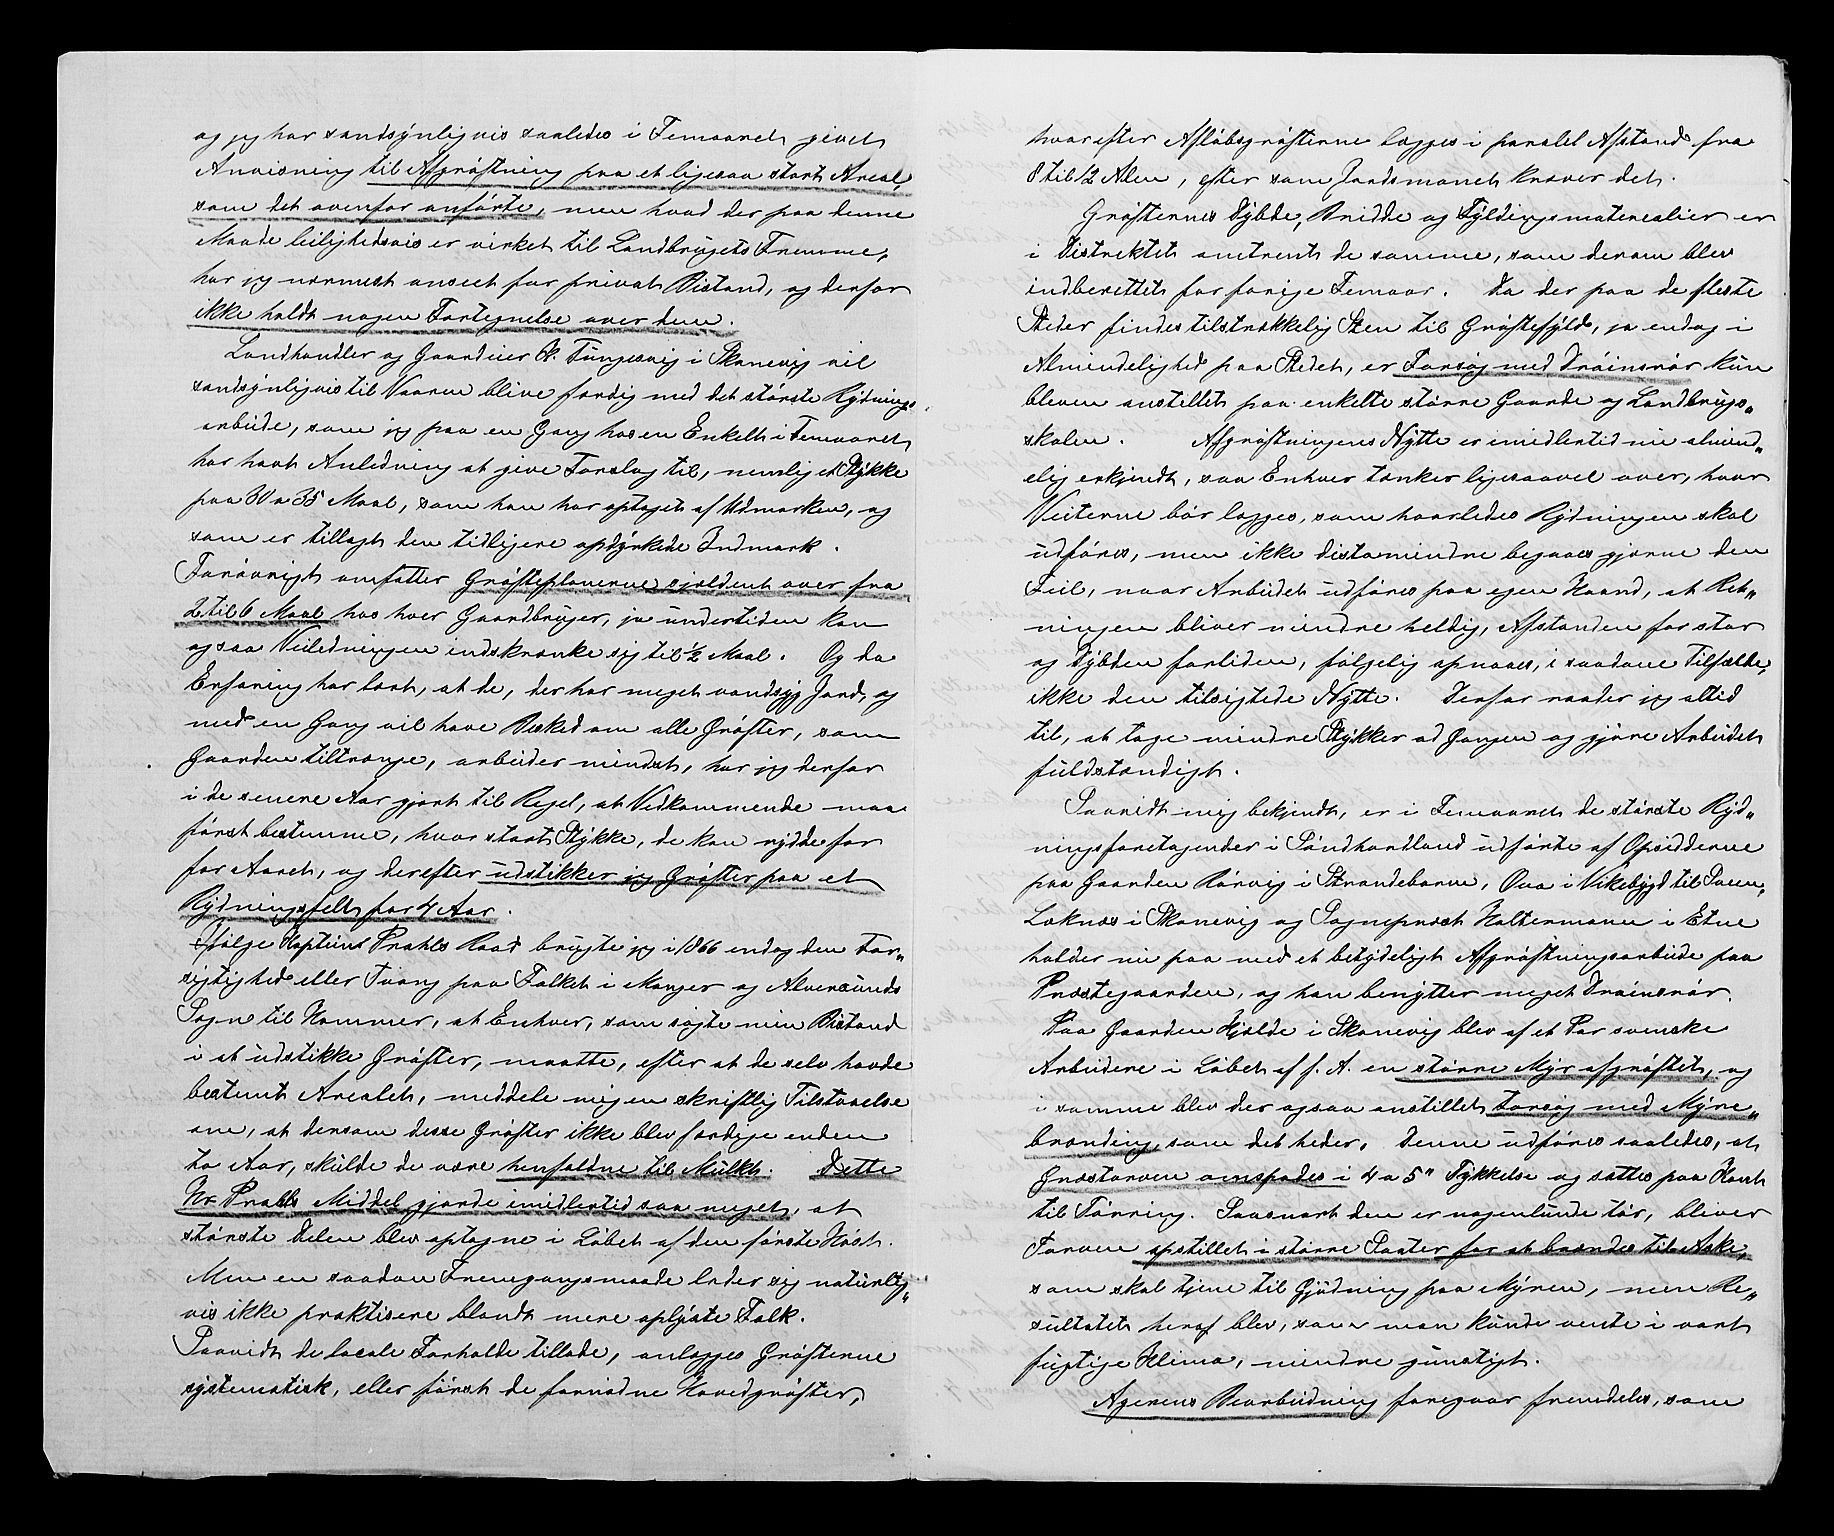 og jeg har sandsynligvis saaledes i Femaaret givet
Anvisning til Afgrøftning paa et ligesaa stort Areal,
som det ovenfor anførte, men hvad der paa denne
Maade leilighedsvis er virket til Landbrugets Fremme,
har jeg nærmest anseet for privat Bistand, og derfor
ikke holdt nogen Fortegnelse over dem.
Landhandler og Gaardeier K. Tungesvig i Skanevig vil
sandsynligvis til Vaaren blive færdig med det største Rydnings
arbeide, som jeg paa en Gang hos en Enkelt i Femaaret
har havt Anledning at give Forslag til, nemlig et Stykke
paa 30 a 35 Maal, som han har optaget af Udmarken, og
som er tillagt den tidligere opdyrkede Indmark.
Forøvrigt omfatter Grøfteplanerne sjældent over fra
2 til 6 Maal hos hver Gaardbruger, ja undertiden kan
ogsaa Veiledningen indskrænke sig til ½ Maal. Og da
Erfaring har lært, at de, der har meget vandsyg Jord, og
med en Gang vil have Besked om alle Grøfter, som
Gaarden tiltrænge, arbeider mindst, har jeg derfor
i de senere Aar gjort til Regel, at Vedkommende maa
først bestemme, hvor stort Stykke, de kan rydde for
for Aaret, og derefter udstikker jeg Grøfter paa et
Rydningsfelt for 4 Aar.
Ifølge Kaptein Prahls Raad brugte jeg i 1866 endog den For„
sigtighed eller Tvang paa Folket i Manger og Alversunds
Sogn til Hammer, at Enhver, som søgte min Bistand
i at udstikke Grøfter, maatte, efter at de selv havde
bestemt Arealet, meddele mig en skriftlig Tilstaaelse
om, at dersom disse Grøfter ikke blev færdige inden
to Aar, skulde de være henfaldne til Mulkt. Dette
Hr. Prahls Middel gjorde imidlertid saa meget, at
største Delen blev optagne i Løbet af den første Høst.
Men en saadan Fremgangsmaade lader sig naturlig„
vis ikke praktisere blandt mere oplyste Folk.
Saavidt de locale Forholde tillade, anlægges Grøfterne
systematisk, eller først de fornødne Hovedgrøfter,
hvorefter Afløbsgrøfterne lægges i paralel Afstand fra
8 til 12 Alen, efter som Jordsmonet kræver det.
Grøfternes Dybde, Bredde og Fyldingsmaterealier er
i Distriktet omtrent de samme, som derom blev
indberettet for forige Femaar. Da der paa de fleste
Steder findes tilstrækkelig Sten til Grøftefyld, ja endog i
Almindelighed paa Stedet, er Forsøg med Drainsrør kun
bleven anstillet paa enkelte større Gaarde og Landbrugs„
skolen. Afgrøftningens Nytte er imidlertid nu almind„
elig erkjendt, saa Enhver tænker ligesaavel over, hvor
Veiterne bør lægges, som hvorledes Rydningen skal
udføres, men ikke distomindre begaaes gjerne den
Feil, naar Arbeidet udføres paa egen Haand, at Ret„
ningen bliver mindre heldig, Afstanden for stor
og Dybden forliden, følgelig opnaaes, i saadane Tilfælde,
ikke den tilsigtede Nytte. Derfor raader jeg altid
til, at tage mindre Stykker ad Gangen og gjøre Arbeidet
fuldstændigt.
Saavidt mig bekjendt, er i Femaaret de største Ryd„
ningsforetagender i Søndhordland udførte af Opsidderne
paa Gaarden Rørvig i Strandebarm, Ova i Vikebygd til Sven,
Loknæs i Skanevig og Sogneprest Haltermann i Etne
holder nu paa med et betydeligt Afgrøftningsarbeide paa
Præstegaarden, og han benytter meget Drainsrør.
Paa Gaarden Hjælde i Skanevig blev af et Par svenske
Arbeidere i Løbet af f. A. en større Myr afgrøftet, og
i samme blev der ogsaa anstillet Forsøg med Myre„
brænding, som det heder. Denne udføres saaledes, at
Græstorven omspades i 4 a 5" Tykkelse og sættes paa Kant
til Tørring. Saasnart den er nogenlunde tør, bliver
Torven opstillet i større Saater for at brændes til Aske,
som skal tjene til Gjødning paa Myren, men Re„
sultatet heraf blev, som man kunde vente i vort
fugtige Klima, mindre gunstigt.
Agerens Bearbeidning foregaar fremdeles, som